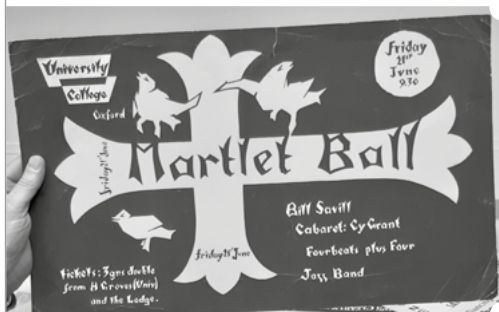 University
College
Oxford
Friday
21st
June
9.30
Martlet Ball
Friday 21st June
Friday 21st June
Bill Savill
Cabaret: Cy Grant
Fourbeats plus Four
Jazz Band
Tickets: 3gns double
from H Groves (Univ)
and the Lodge.